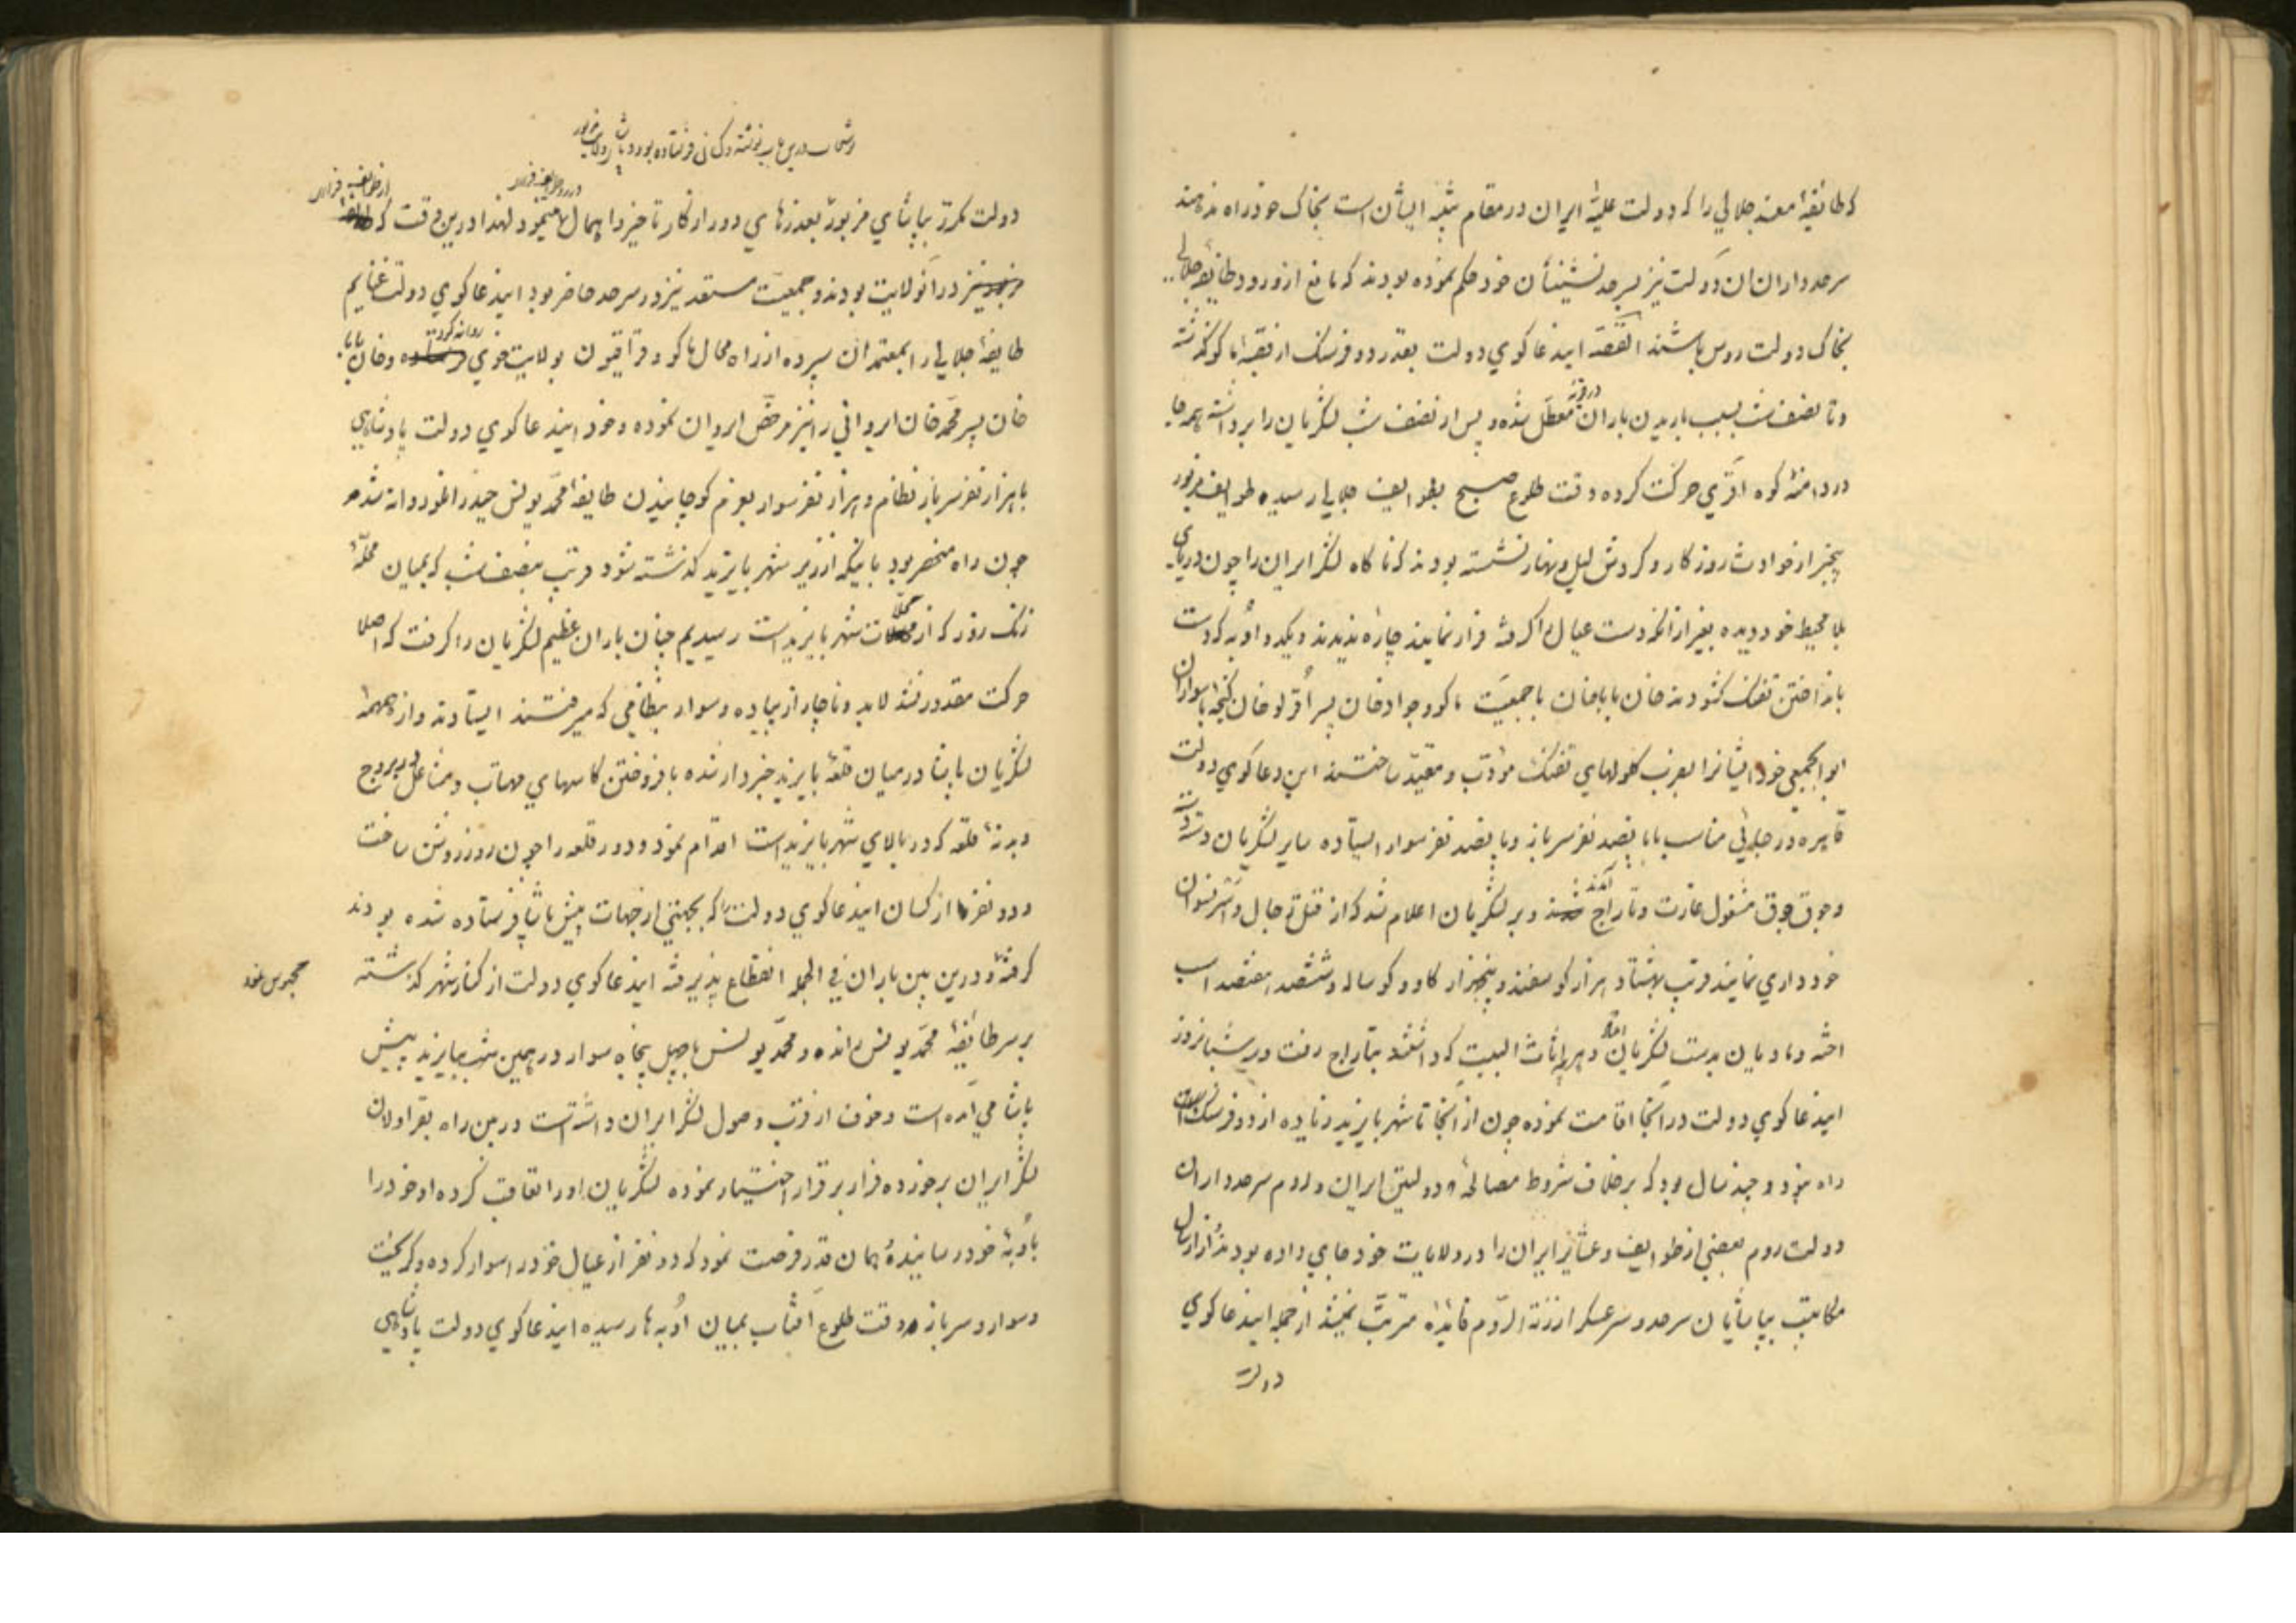 که طائفهٔ مفسد جلالی را که دولت علیهٔ ایران در مقام تنبیه ایشان است بخاک خود راه ندهند
سرحدداران ان دولت نیز بسرحدنشینان خود حکم نموده بودند که مانع از ورود طایفه جلالی
بخاک دولت روس باشند القصه ایندعاکوی دولت بقدر دو فرسنک از قصبهٔ ماکو کذشته
وتا نصف شب بسبب باریدن باران معطل شده و پس از نصف شب لشکریان را برداشته همه جا
در دامنهٔ کوه اقری حرکت کرده وقت طلوع صبح بطوایف جلالی رسیده طوایف مزبور
بیخبر از حوادث روزکار و کردش لیل و نهار نشسته بودند که ناکاه لشکر ایران را چون دریای
بلا محیط خود دیده بغیر از انکه دست عیال را کرفته فرار نمایند چاره ندیدند ویکدو اوبه که دست
بانداختن تفنک کشودند خان باباخان با جمعیت ماکو و جوادخان پسر اغرلو خان کنجه با سواران
ابوابجمعی خود ایشانرا بضرب کلولهای تفنک مؤدب و مقید ساختند این دعاکوی دولت
قاهره در جایی مناسب با پانصد نفر سرباز و پانصد نفر سوار ایستاده سایر لشکریان دسته دسته
وجوق جوق مشغول غارت و تاراج شدند و بر لشکریان اعلام شد که از قتل رجال و اسر نسوان
خودداری نمایند قرب هشتاد هزار کوسفند و پنجهزار کاو و کوساله و ششصد هفتصد اسب
اخته و مادیان بدست لشکریان افتاد و هر اثاث البیت که داشتند بتاراج رفت و سه شبانروز
ایندعاکوی دولت در آنجا اقامت نموده چون از آنجا تا شهر بایزید زیاده از دو فرسنک
راه نبود و چند سال بود که برخلاف شروط مصالحهٔ دولتین ایران و روم سرحدداران
دولت روم بعضی از طوایف و عشایر ایران را در ولایات خود جای داده بودند و از ارسال
مکاتیب بپاشایان سرحد و سرعسکر ارزنة الروم فائدهٔ مترتب نمیشد از جمله ایندعاکوی
دولت
دولت مکرر بپاشای مزبور بعذرهای دور از کار تاخیر و اهمال مینمود لهذا درین وقت که
نیز در آنولایت بودند و جمعیت مستعد نیز در سرحد حاضر بود ایندعاکوی دولت غنایم
طایفهٔ جلالی را بمعتمدان سپرده از راه محال ماکو و قراقیون بولایت خوی روانه کرد و خان بابا
خان پسر محمد خان ایروانی را نیز مرخص ایروان نموده و خود ایندعاکوی دولت پادشاهی
با هزار نفر سرباز نظام و هزار نفر سوار بعزم کوچانیدن طایفهٔ محمد یونس حیدرانلو روانه شد
چون راه منحصر بود باینکه از زیر شهر بایزید کذشته شود قریب بنصف شب که بمیان محلهٔ
زنک زور که از محلات شهر بایزید است رسیدیم چنان باران عظیم لشکریان را کرفت که اصلا
حرکت مقدور نشد لابد و ناچار از پیاده و سوار بنظامی که میرفتند ایستادند و از همهمهٔ
لشکریان پاشا در میان قلعهٔ بایزید خبردار شده بافروختن کاسهای مهتاب و مشاعل در بروج
و بدنهٔ قلعه که در بالای شهر بایزید است اقدام نمود و دور قلعه را چون روز روشن ساخت
و دو نفر از کسان ایندعاکوی دولت را که بجهتی از جهات پیش پاشا فرستاده شده بودند
کرفته و درین بین باران فی الجمله انقطاع پذیرفته ایندعاکوی دولت از کنار شهر کذشته
محبوس نمود
بر سر طائفهٔ محمد یونس رانده و محمد یونس با چهل پنجاه سوار در همین شب ببایزید پیش
پاشا می آمده است و خوف از قرب وصول لشکر ایران داشته است در بین راه بقراولان
لشکر ایران برخورده فرار بر قرار اختیار نموده لشکریان او را تعاقب کرده او خود را
باوبهٔ خود رسانیده همان قدر فرصت نمود که دو نفر از عیال خود را سوار کرده و کریخت
و سوار و سرباز وقت طلوع آفتاب بمیان اوبه ها رسیده ایندعاکوی دولت پادشاهی